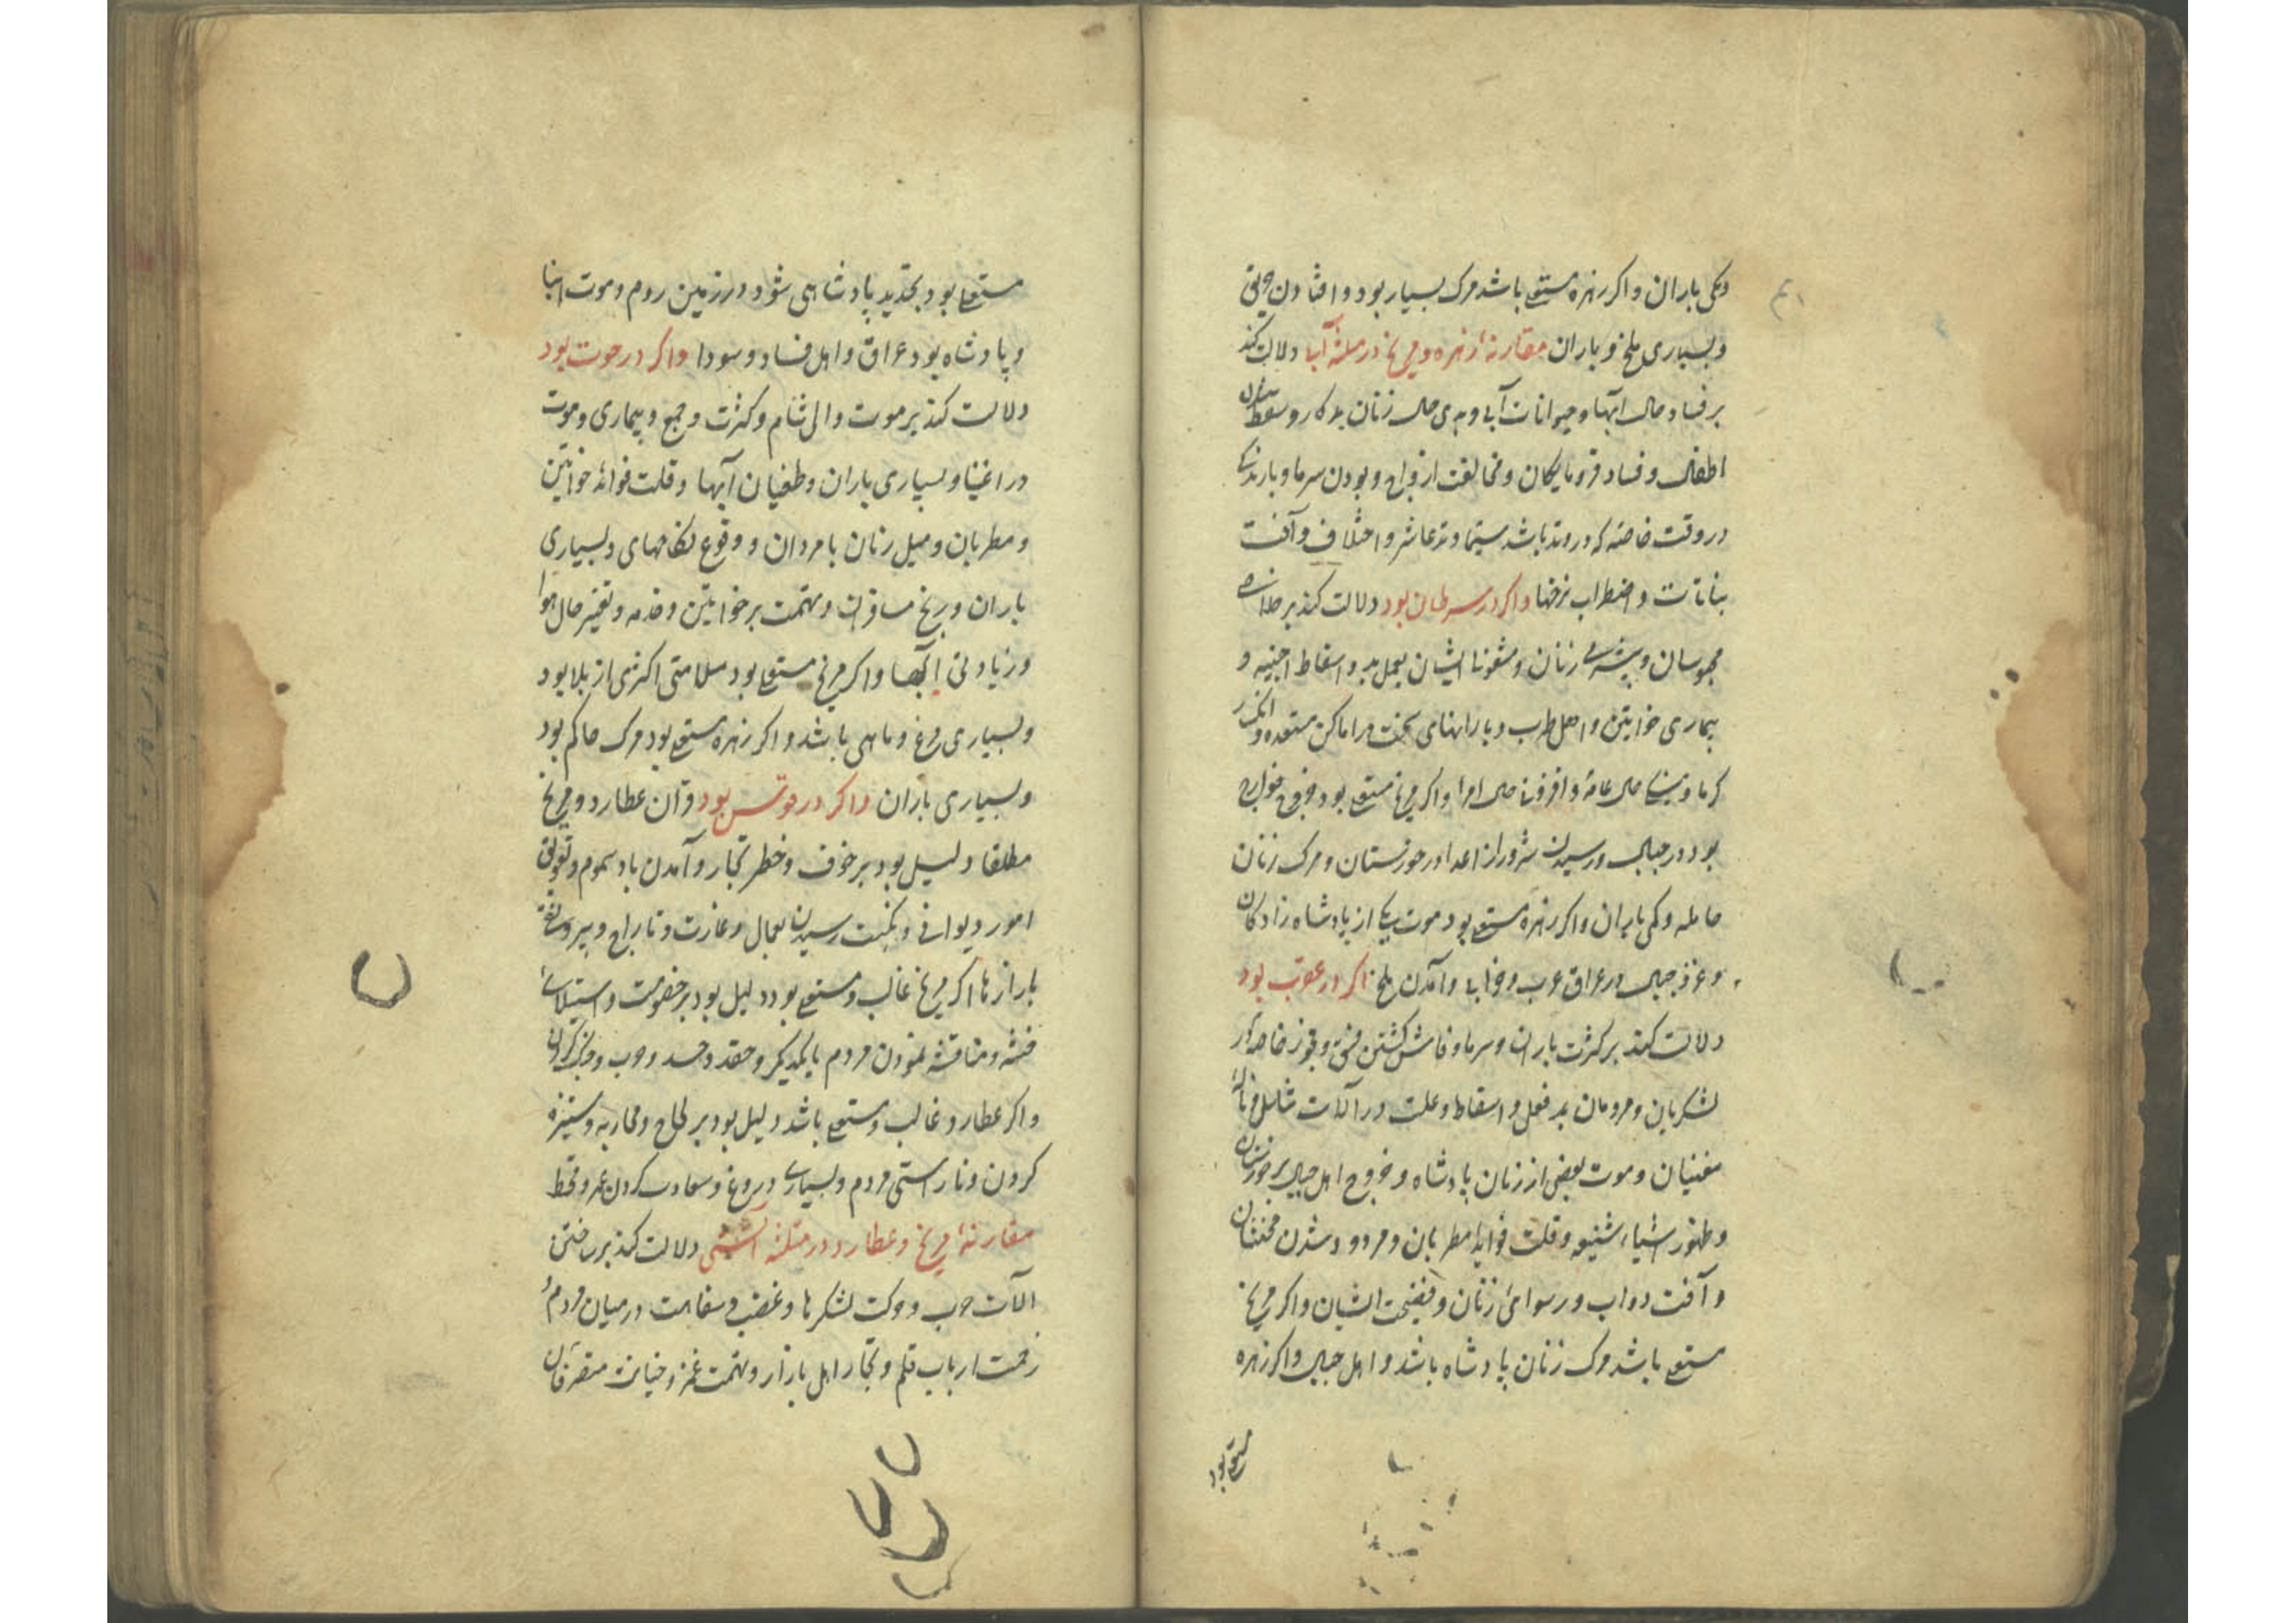 وکمی باران و اکر زهره مستعلی باشد مرک بسیار بود و افتادن
و بسیاری ملخ و باران مقارنهٔ زهره و مریخ در مثلثهٔ آبی دلالت کند
بر فساد حال آبها و حیوانات آبی و بدی حال زنان بدکار و سقط شدن
اطفال و فساد فرومایکان و مخالفت ازواج و بودن سرما و بارندکی
در وقت خاصه که در وتد باشد سیما وتد عاشر و اختلاف و آفت
نباتات و اضطراب نرخها واکر در سرطان بود دلالت کند بر خلاصی
محبوسان و زنان و ایشان بعمل بد و اسقاط اجنبیه و
بیماری خواتین و اهل طرب و بارانهای سخت در اماکن متعدده و
کرما و حال عامه و حال امرا واکر مریخ مستعلی بود خروج خوارج
بود در جبال و رسیدن شرور از اعدا در خوزستان و مرک زنان
حامله و کمی باران واکر زهره مستعلی بود موت یکی از پادشاه زادکان
و جبال در عراق عرب و خرابی و آمدن ملخ اکر در عقرب بود
دلالت کند بر کثرت باران و سرما و فاش کشتن فسق و فجور خاصه از
لشکریان و مردمان بد فعل و اسقاط و علت در آلات تناسل و
مغنیان و موت بعضی از زنان پادشاه و خروج اهل جبال بر خوزستان
و ظهور اشیاء شنیعه و قلت فواید مطربان و مردود شدن مخنثان
و آفت دواب و رسوائی زنان و فضیحت ایشان واکر مریخ
مستعلی باشد مرک زنان پادشاه باشد و اهل جبال واکر زهره
مستعلی بود
مستعلی بود تجدید پادشاهی شود در زمین روم و موت ابنا
و پادشاه بود عراق و اهل فساد و سودا واکر در حوت بود
دلالت کند بر موت والی شام و کثرت وجع و بیماری و موت
در اغنیا و بسیاری باران و طغیان آبها و قلت فوائد خواتین
و مطربان و میل زنان با مردان و وقوع نکاحهای و بسیاری
باران و رنج مسافران و تهمت بر خواتین و خدمه و تغییر حال هوا
و زیادتی آبها واکر مریخ مستعلی بود سلامتی اکثری از بلا بود
و بسیاری مرغ و ماهی باشد واکر زهره مستعلی بود مرک حاکم بود
و بسیاری باران واکر در قوس بود قران عطارد و مریخ
مطلقا دلیل بود بر خوف و خطر تجار و آمدن باد سموم و تعویق
امور دیوانی و نکبت رسیدن بعمال و غارت و تاراج و بیرونقی
بازارها اکر مریخ غالب و مستعلی بود دلیل بود بر خصومت و استیلای
فتنه و مناقشه نمودن مردم با یکدیکر و حقد و حسد و حرب و جنک کردن
واکر عطارد غالب و مستعلی باشد دلیل بود بر لجاج و محاربه و ستیزه
کردن و ناراستی مردم و بسیاری دروغ و کردن و قحط
مقارنهٔ مریخ و عطارد در مثلثهٔ آتشی دلالت کند بر ساختن
آلات حرب و حرکت لشکرها و غضب و سفاهت در میان مردم و
زحمت ارباب قلم و تجار اهل بازار و تهمت غمز و خیانت متصرفان